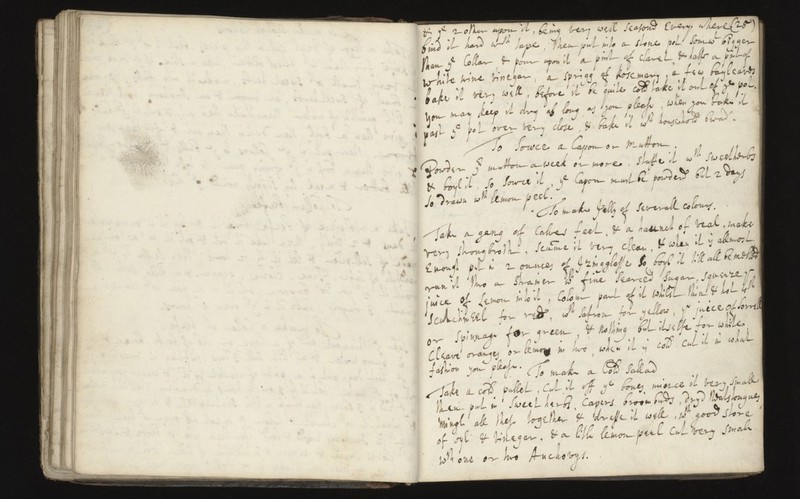 & ye 2 other upon it, being very well seasond every where (28)
bind it hard wth tape, then put into a stone pot somw bigger
then ye Collar & pour upon it a pint of claret, & halfe a pint of
white wine vinegar, a sprigg of Rosemary, a few bayleaves
bake it very well, before it be quite cold take it out of ye pot.
you may keep it dry as long as you please, when you bake it
past ye pot over very close, & bake it wth household bread.
To Sowce a Capon or Mutton
Powder ye mutton a week or more, stuffe it wth sweetherbs
& boyl it, so sowce it, ye Capon must be powderd but 2 days
so drawn wth lemon peel.
To make Jelly of severall colours.
Take a gang of Calves feet, & a haunch of veal, make
very strong broth, scume it very clean, & when it is allmost
enough put in 2 ounces of Izingglasse so boyl it till all be melted
run it thro a strainer wth fine searced sugar, squeeze ye
juice of Lemon into it, Colour part of it whilst thin & hot wth
Scutchineel for red, wth safron for yellow, ye juice of sorrell
or spinnage for green & nothing but itselfe for white.
Cleave oranges or lemons in two, when it is cold cut it in what
fashion you please.
To make a Cold Sallad
Take a cold pullet, cut it off ye bones, mince it very small
then put in sweet herbs, Capers, broombuds, dryd Neatstongues
mingle all these together & dresse it well, wth good store
of oyl & vinegar, & a little lemon peel cut very small
wth one or two Anchovys.